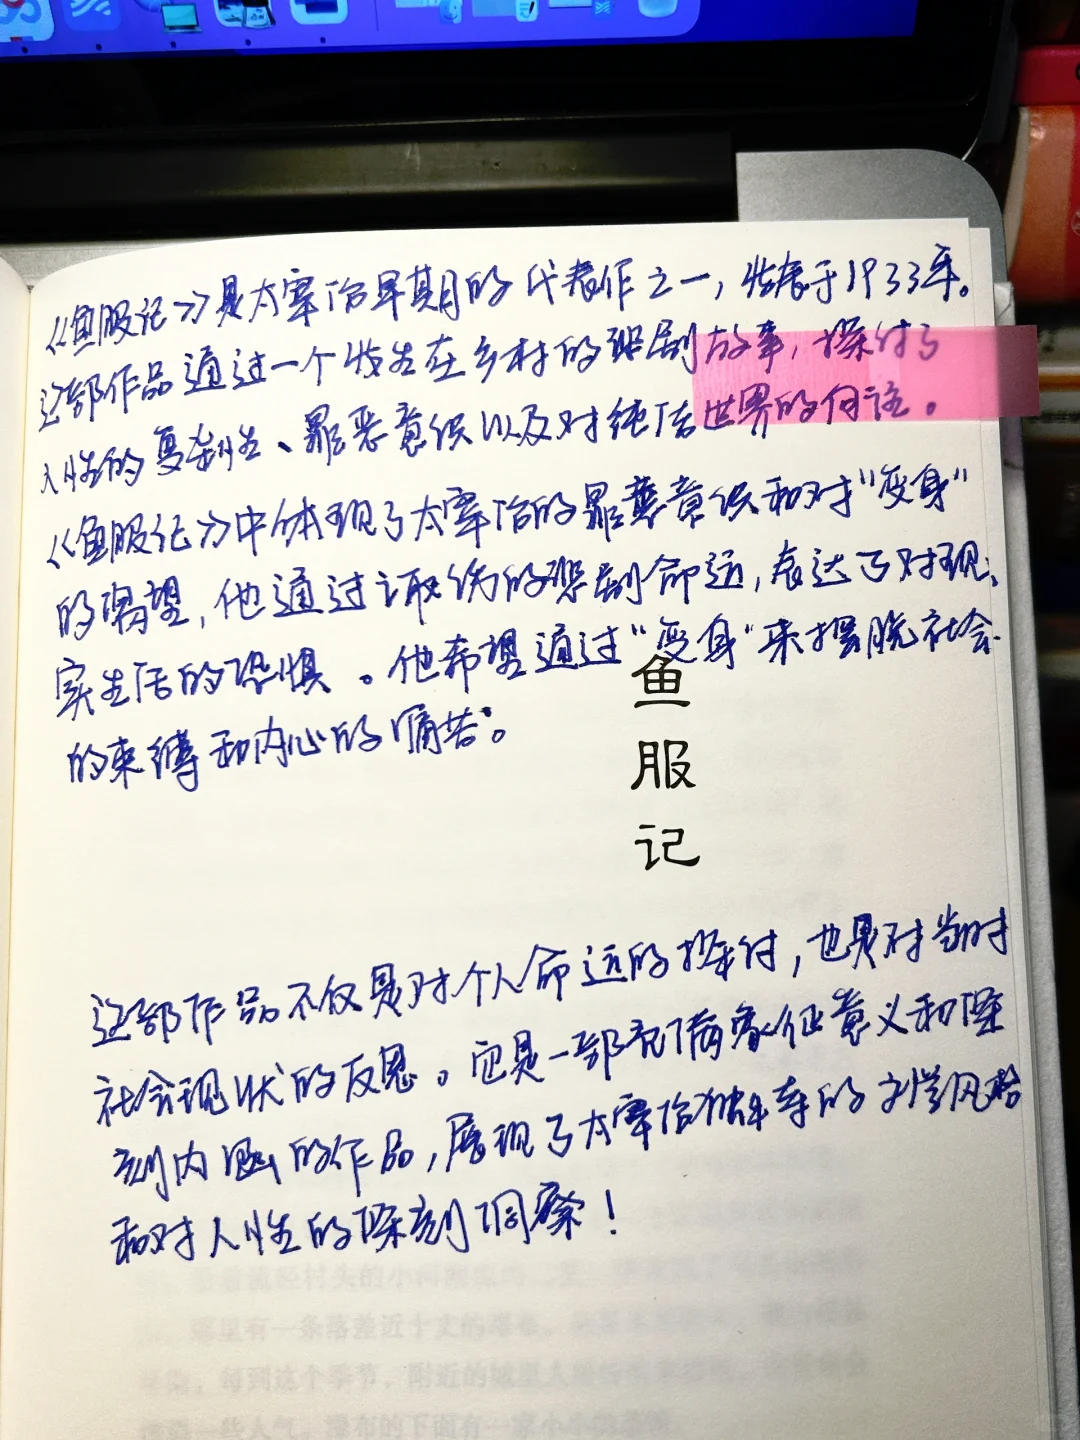 《鱼服记》是太宰治早期的代表作之一，发表于1933年。
这部作品通过一个发生在乡村的悲剧故事，探讨了
人性的复杂性、罪恶意识以及对纯洁世界的向往。
《鱼服记》中体现了太宰治的罪恶意识和对"变身"
的渴望，他通过的悲剧命运，表达了对现
实生活的恐惧。他希望通过"变身"来摆脱社会
的束缚和内心的痛苦。
鱼
服
记
这部作品不仅是对个人命运的探讨，也是对当时
社会现状的反思。它是一部充满象征意义和深
刻内涵的作品，展现了太宰治独特的文学风格
和对人性的深刻洞察！